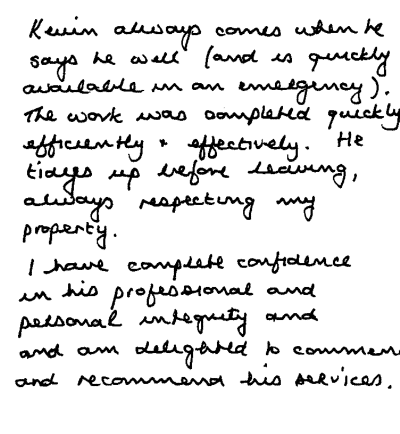 Kevin always comes when he
says he will (and is quickly
available in an emergency).
The work was completed quickly
efficiently + effectively. He
tidyes up before leaving,
always respecting my
property.
I have complete confidence
in his professional and
personal integrity and
and am delighted to commen
and recommend his services.